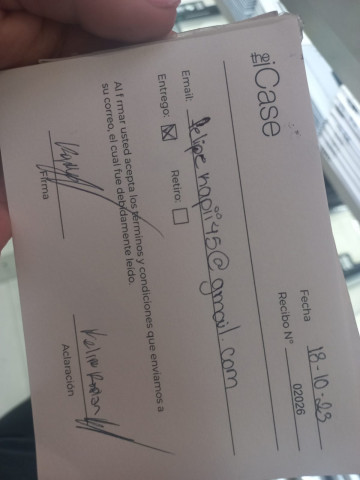 iCase
Fecha 18-10-23
Recibo N° 02026
Email: @gmail.com
Entrego: ☒ Retiro: ☐
Al f rmar usted acepta los términos y condiciones que enviamos a
su correo, el cual fue debidamente leído.
Firma
Aclaración